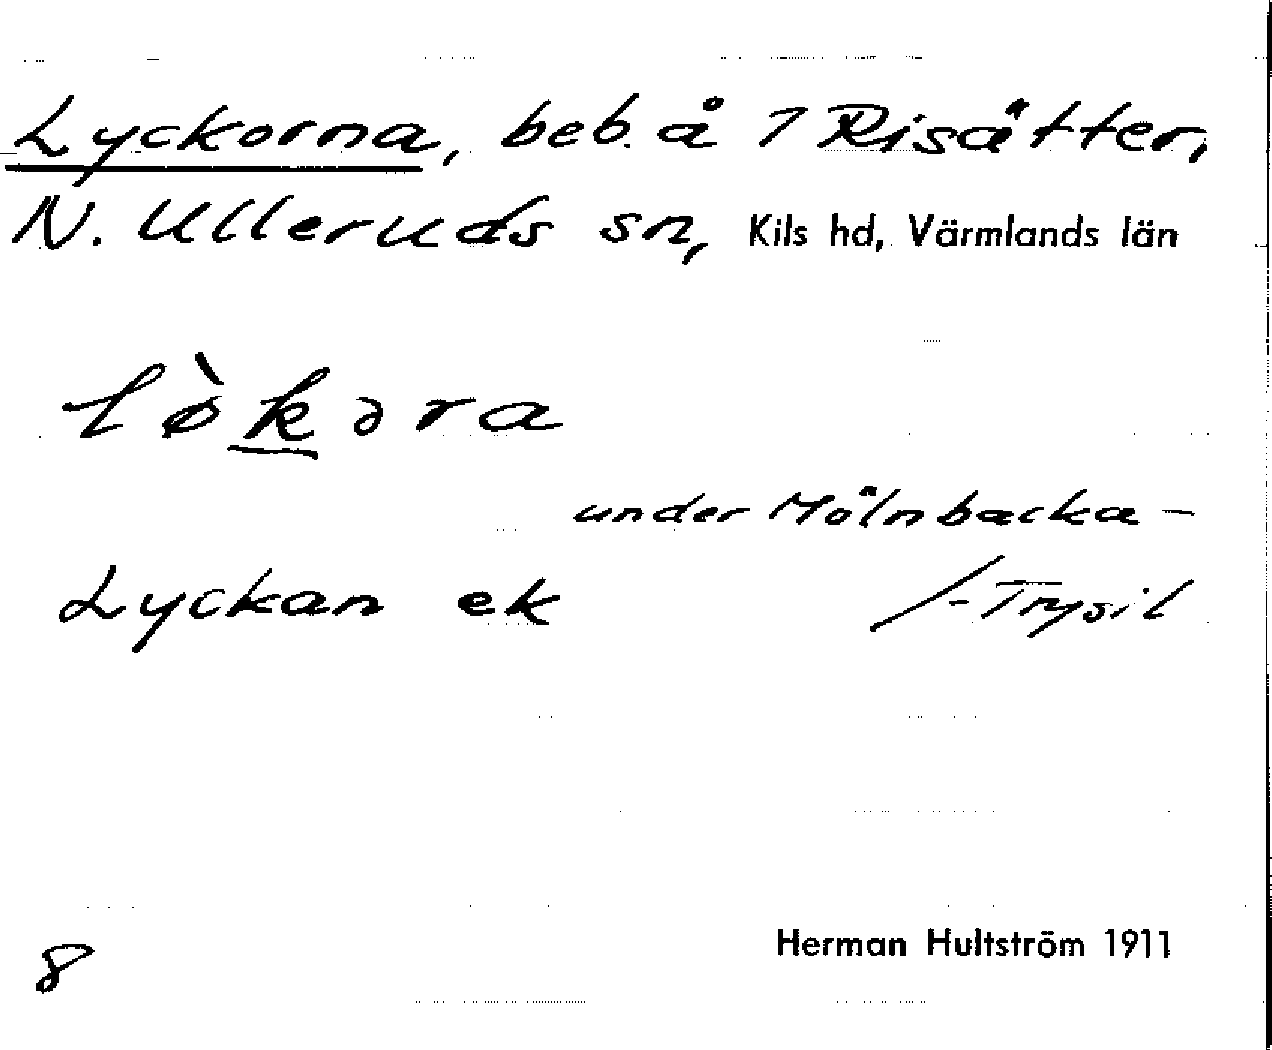 Lyckorna, beb. å 1 Risätter,
N. Ulleruds sn, Kils hd, Värmlands län
lø̀kəra
under Mölnbacka-
Lyckan ek /-Trysil
8
Herman Hultström 1911